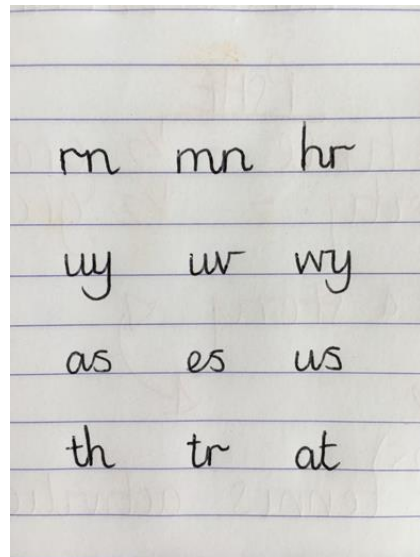 rn mn hr
uy uv wy
as es us
th tr at